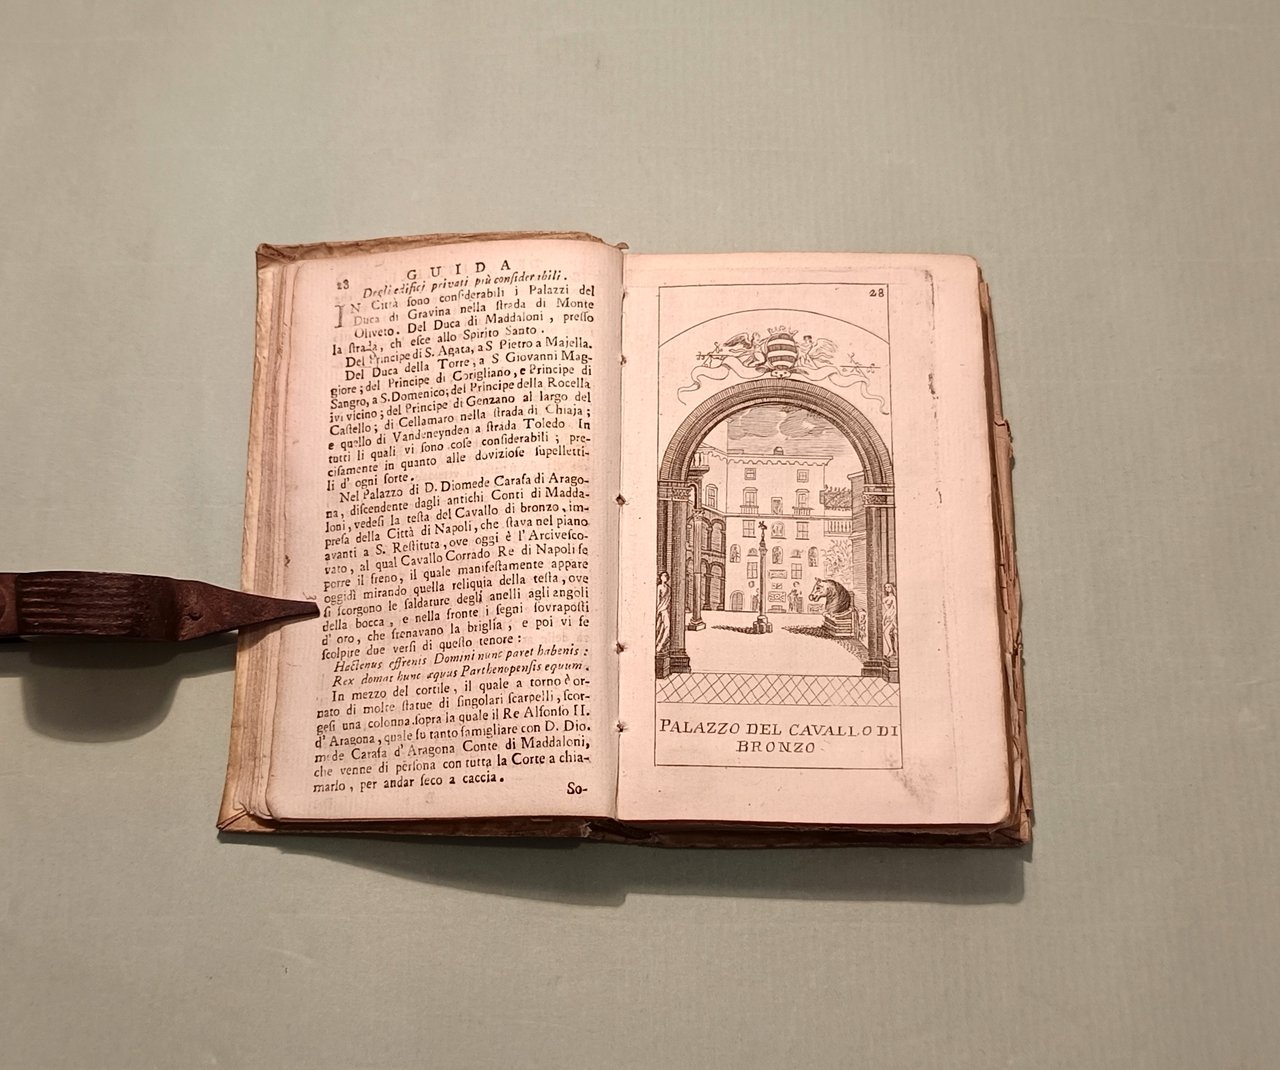 28 GUIDA
Degli edifici privati più considerabili.
IN Città sono considerabili i Palazzi del
Duca di Gravina nella strada di Monte
Oliveto. Del Duca di Maddaloni, presso
la strada, ch' esce allo Spirito Santo.
Del Principe di S. Agata, a S Pietro a Majella.
Del Duca della Torre, a S Giovanni Mag-
giore; del Principe di Corigliano, e Principe di
Sangro, a S. Domenico; del Principe della Rocella
ivi vicino; del Principe di Genzano al largo del
Castello; di Cellamaro nella strada di Chiaja;
e quello di Vandeneynden a strada Toledo In
tutti li quali vi sono cose considerabili; pre-
cisamente in quanto alle doviziose supelletti-
li d' ogni sorte.
Nel Palazzo di D. Diomede Carafa di Arago-
na, discendente dagli antichi Conti di Madda-
loni, vedesi la testa del Cavallo di bronzo, im-
presa della Città di Napoli, che stava nel piano
avanti a S. Restituta, ove oggi è l' Arcivesco-
vato, al qual Cavallo Corrado Re di Napoli fe
porre il freno, il quale manifestamente appare
oggidì mirando quella reliquia della testa, ove
si scorgono le saldature degli anelli agli angoli
della bocca, e nella fronte i segni sovraposti
d' oro, che frenavano la briglia, e poi vi fe
scolpire due versi di questo tenore:
Hactenus effrenis Domini nunc paret habenis:
Rex domat hunc æquus Parthenopensis equum.
In mezzo del cortile, il quale a torno è or-
nato di molte statue di singolari scarpelli, scor-
gesi una colonna, sopra la quale il Re Alfonso II.
d' Aragona, quale fu tanto famigliare con D. Dio.
mede Carafa d' Aragona Conte di Maddaloni,
che venne di persona con tutta la Corte a chia-
marlo, per andar seco a caccia.
So-
28
PALAZZO DEL CAVALLO DI
BRONZO